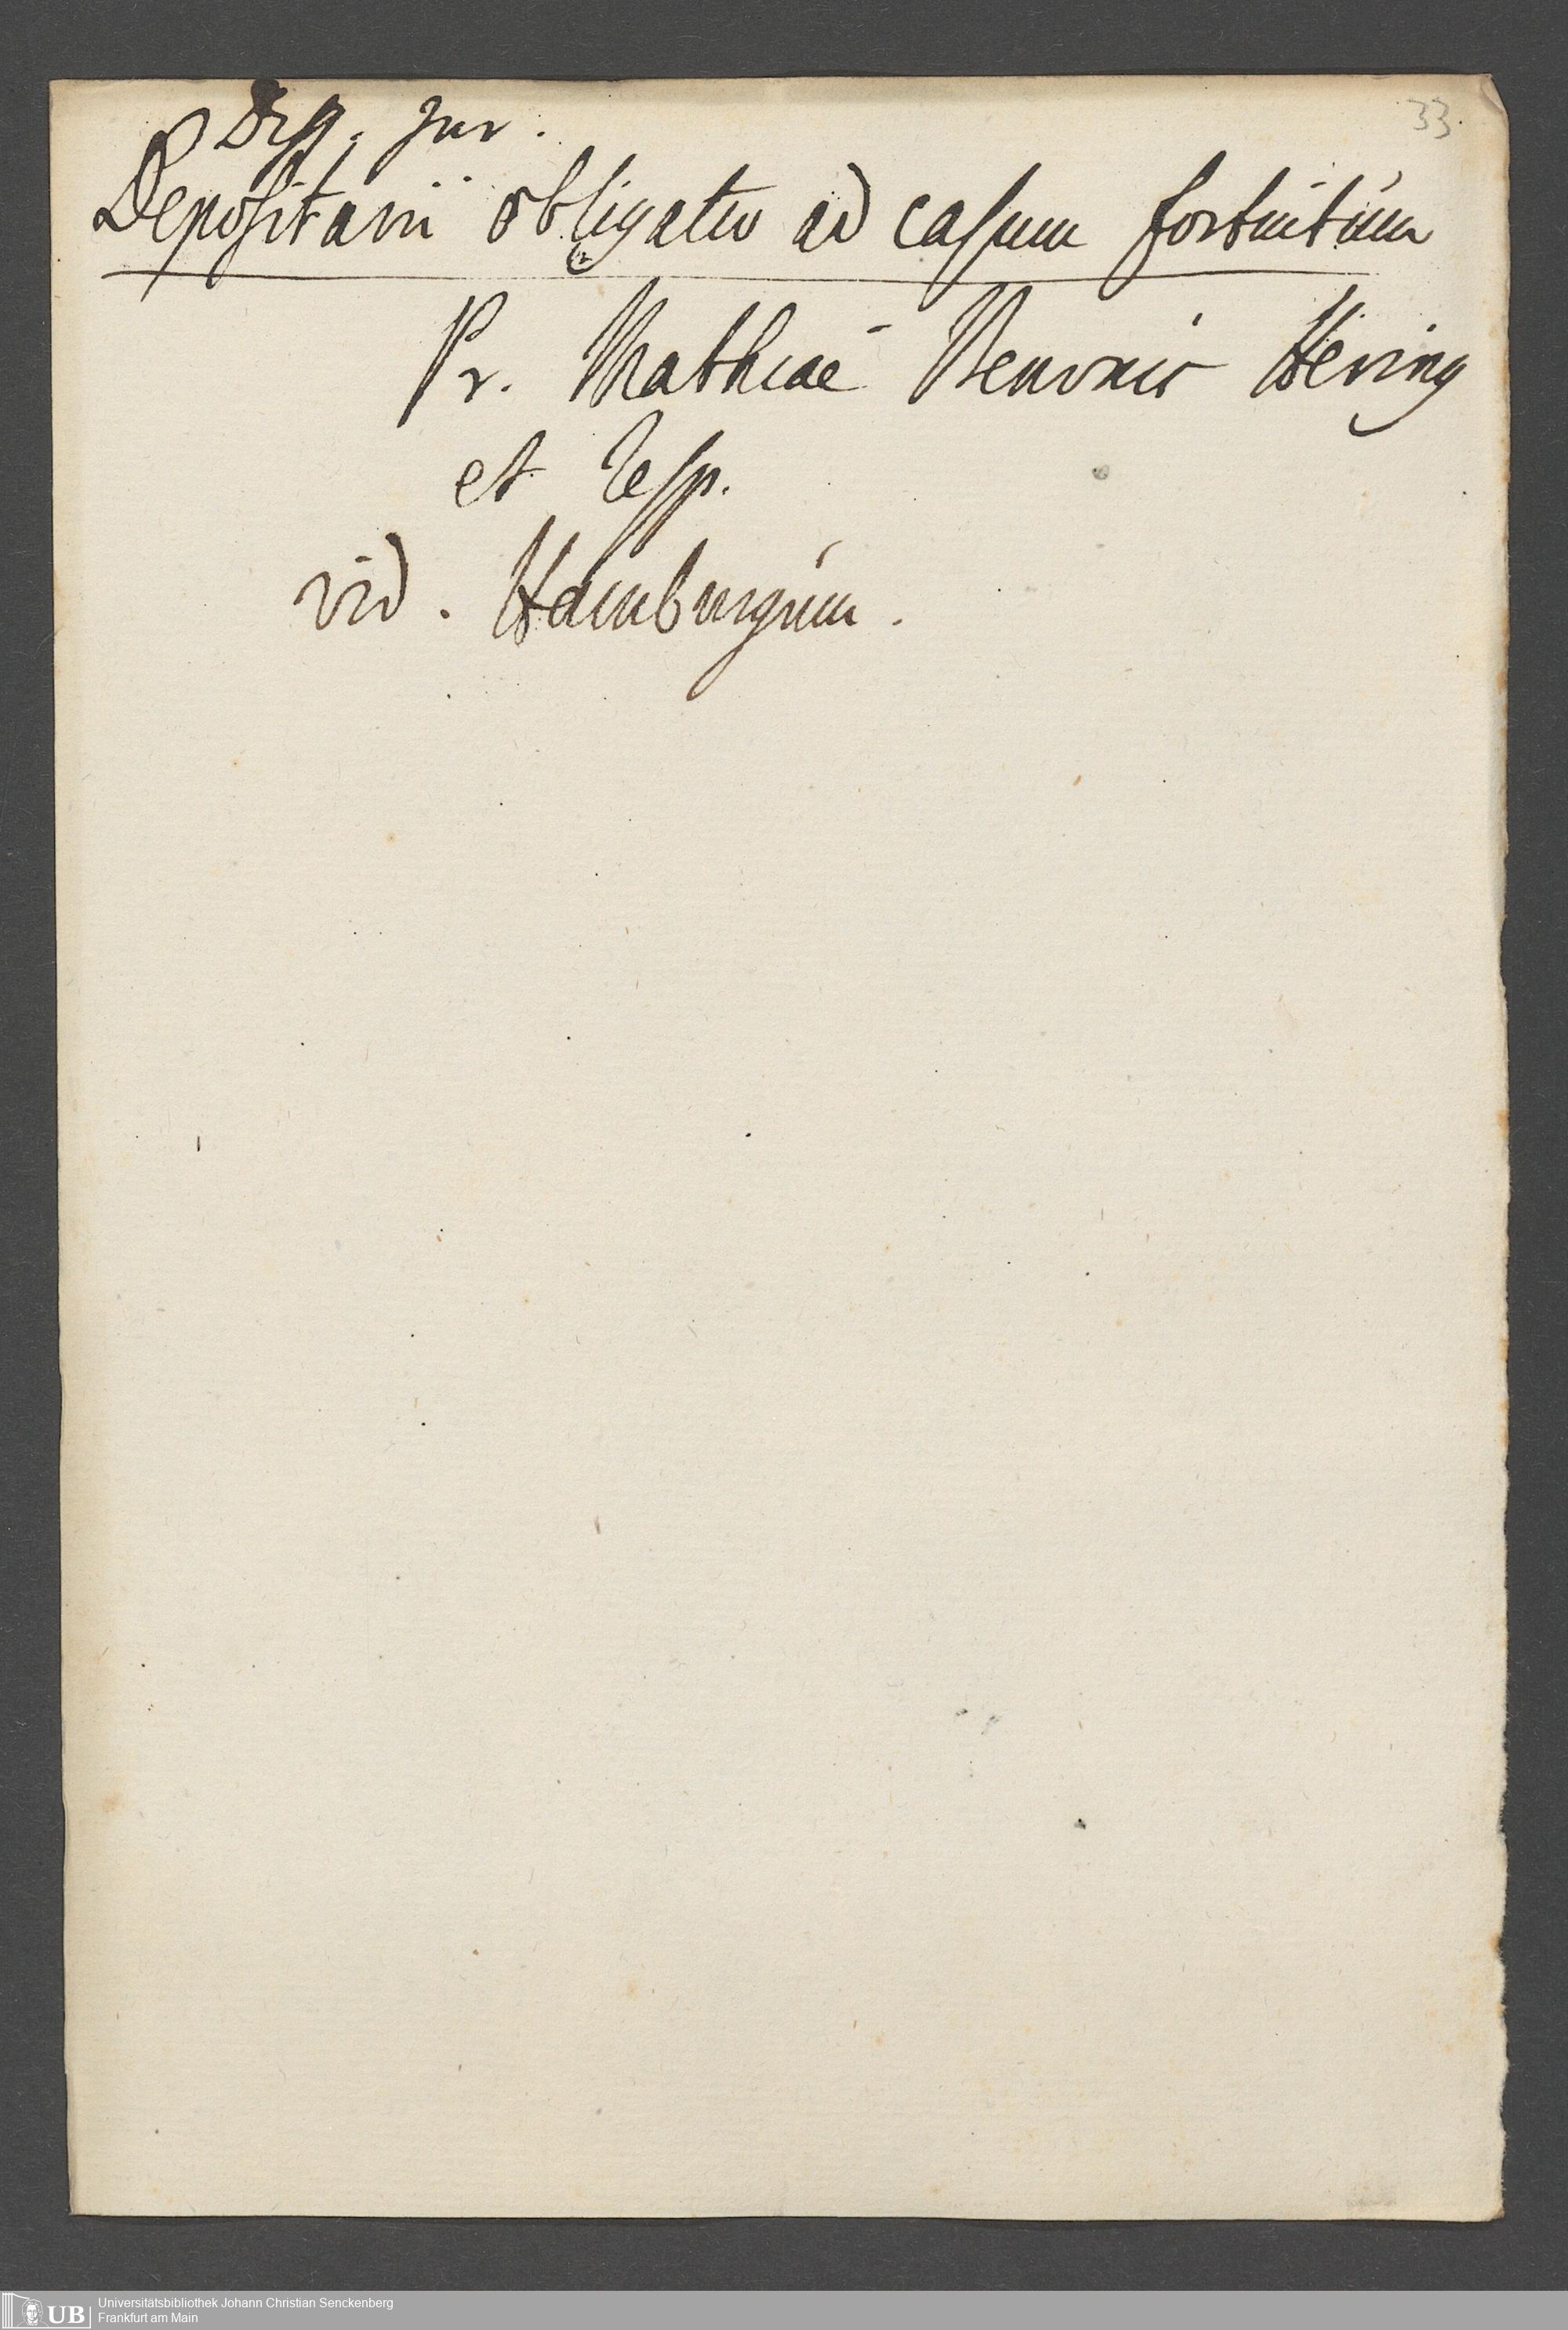 33.
Diss. jur.
Depositarii obligatio ad casum fortuitum
Pr. Mathiae Hering
et Resp.
vid. Hamburgum.
UB Universitätsbibliothek Johann Christian Senckenberg
Frankfurt am Main